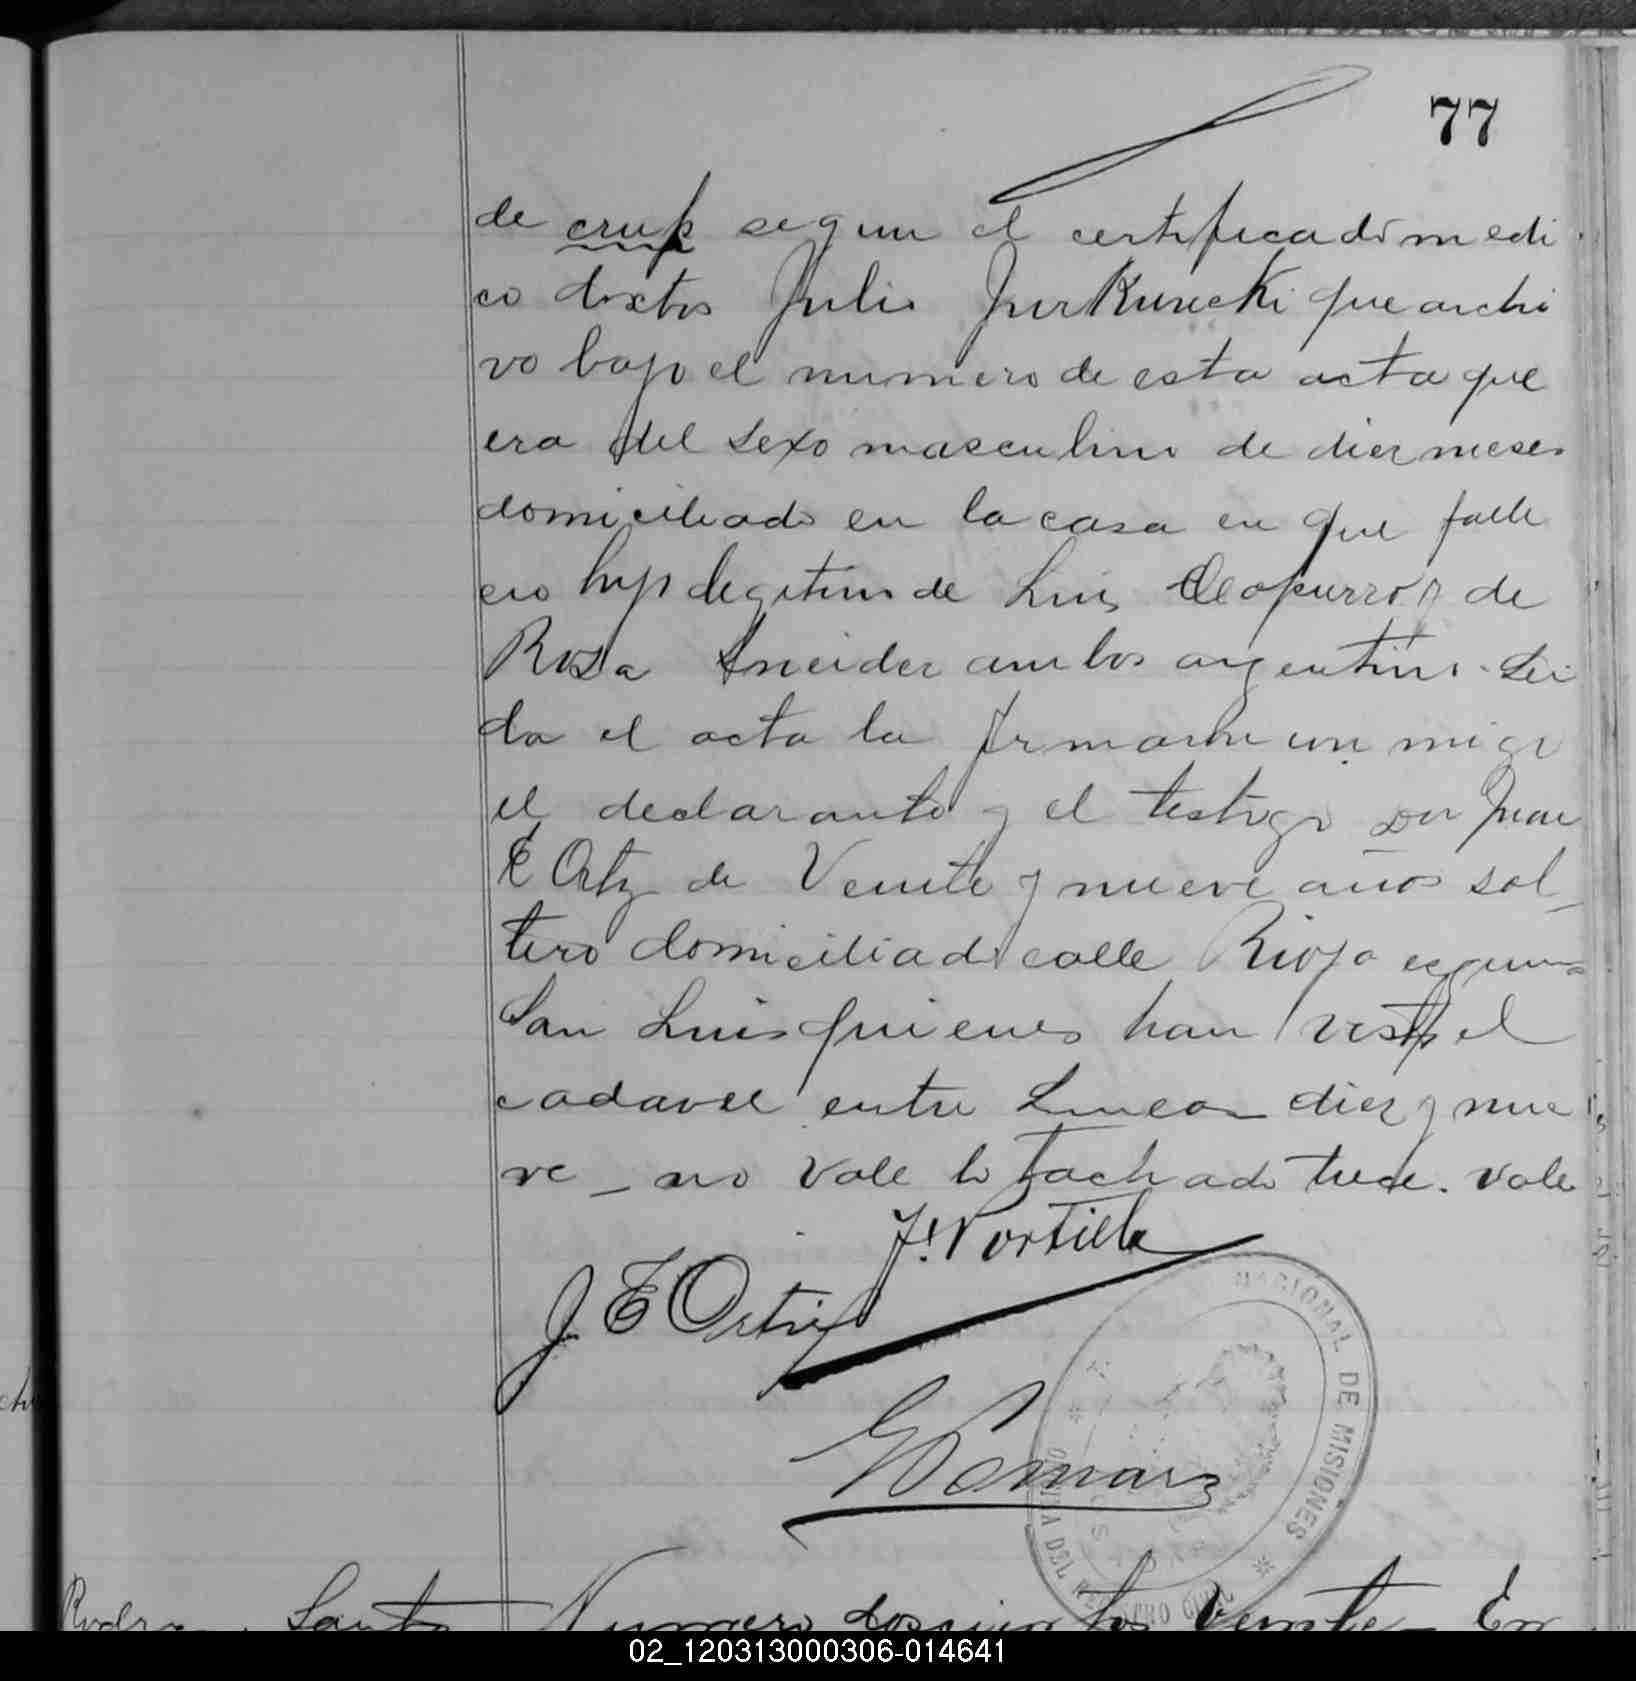 77
de crup segun el certificado medi
co doctor Julio Jurkunecki que archi
vo bajo el numero de esta acta que
era del sexo masculino de diez meses
domiciliado en la casa en que falle
cio hijo legitimo de Luis y de
Rosa Sneider ambos argentinos. Lei
da el acta la firmaron conmigo
el declarante y el testigo Don Juan
E Ortiz de Veinte y nueve años sol_
tero domiciliado calle Rioja esquina
San Luis quienes han visto el
cadaver entre Lineas diez y nue
ve _ no vale lo tachado trece. vale
J. Portillo
J E Ortiz
NACIONAL DE MISIONES
OFICINA DEL REGISTRO CIVIL
Santos Numero doscientos Veinte _ En
02_120313000306-014641